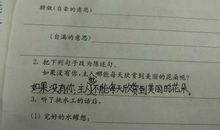 骄傲(自豪的意思)
(自满的意思)
2. 把下列句子改为陈述句。
如果没有你,主人哪能每天欣赏到美丽的花朵呢?
如果没有你,主人不能每天欣赏到美丽的花朵。
3. 听了挑水工的话后,
(1) 完好的水罐想: